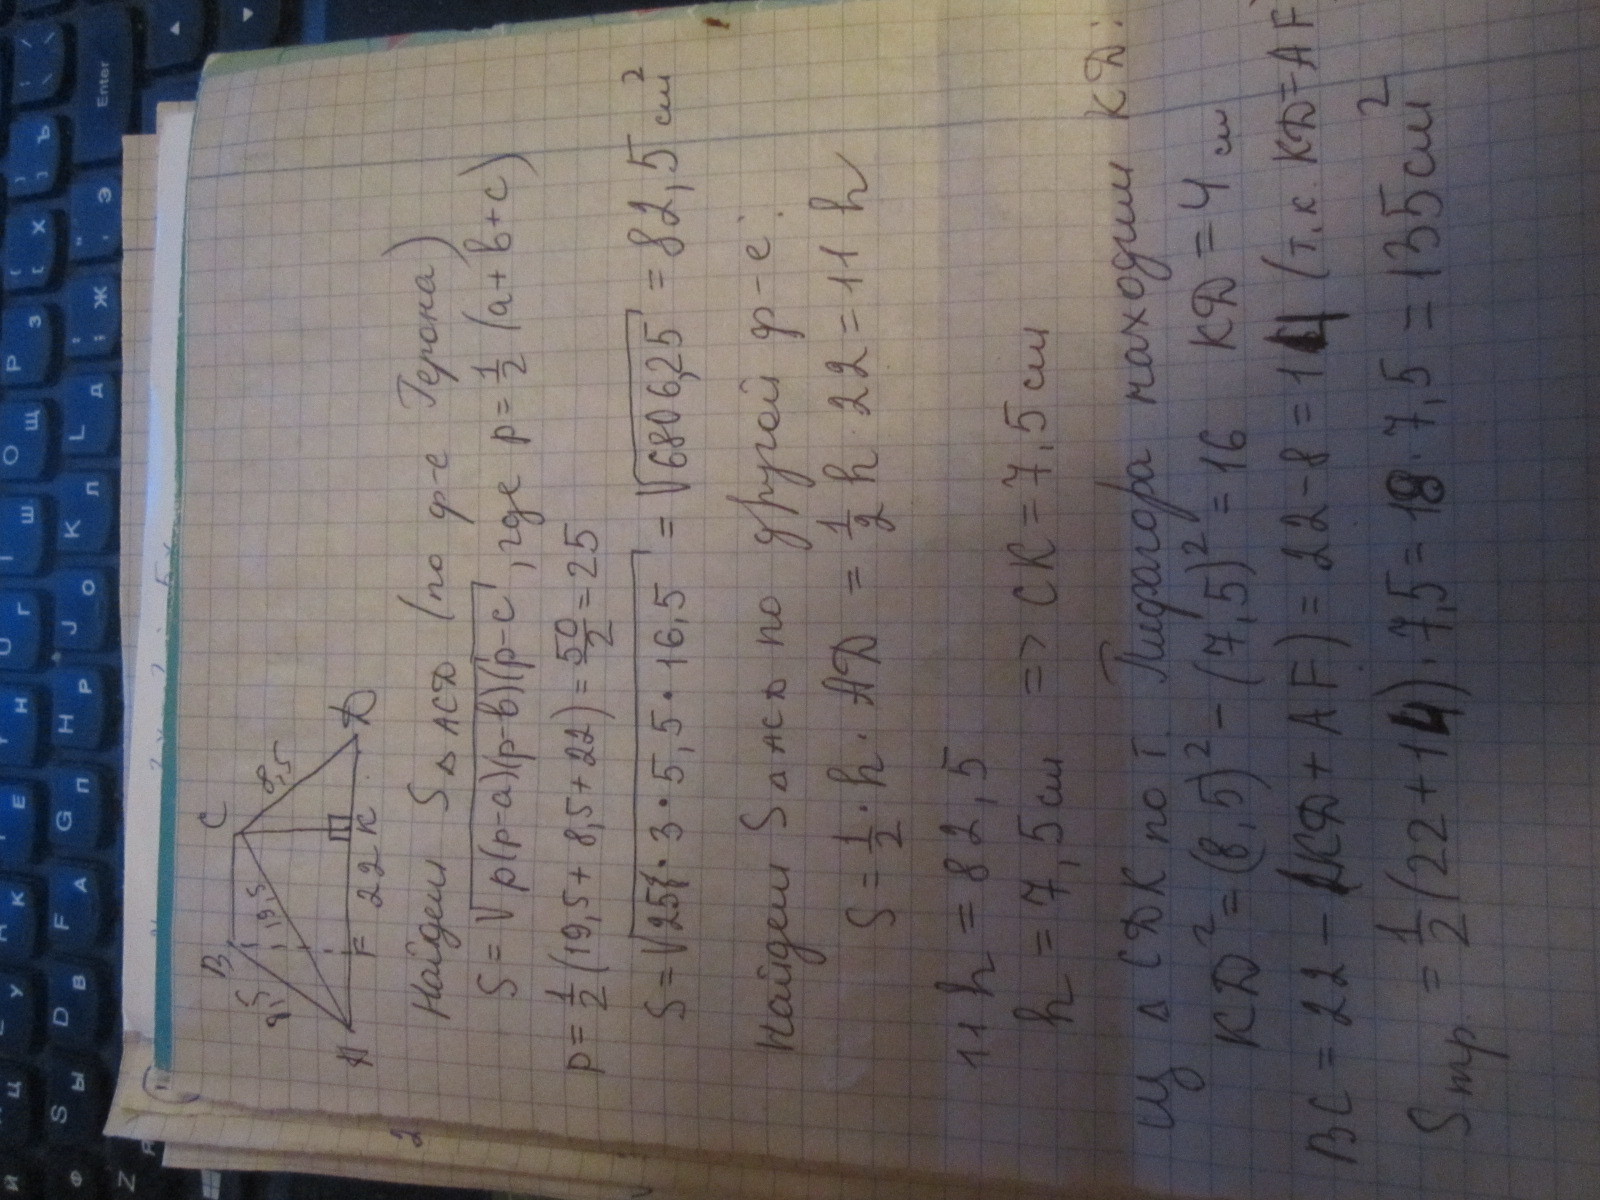 B C
8,5 19,5 8,5
A F 22 K D
Найдем S △ ACD (по ф-е Герона)
S = √p(p-a)(p-b)(p-c), где p = 1/2 (a + b + c)
p = 1/2 (19,5 + 8,5 + 22) = 50/2 = 25
S = √25 · 3 · 5,5 · 16,5 = √6806,25 = 82,5 см²
Найдем S △ ACD по другой ф-е:
S = 1/2 · h · AD = 1/2 h · 22 = 11 h
11 h = 82,5
h = 7,5 см => CK = 7,5 см
Из △ CDK по т. Пифагора находим KD:
KD² = (8,5)² - (7,5)² = 16 KD = 4 см
BC = 22 - (KD + AF) = 22 - 8 = 14 (т.к. KD = AF)
S тр. = 1/2 (22 + 14) · 7,5 = 18 · 7,5 = 135 см²
2
Enter